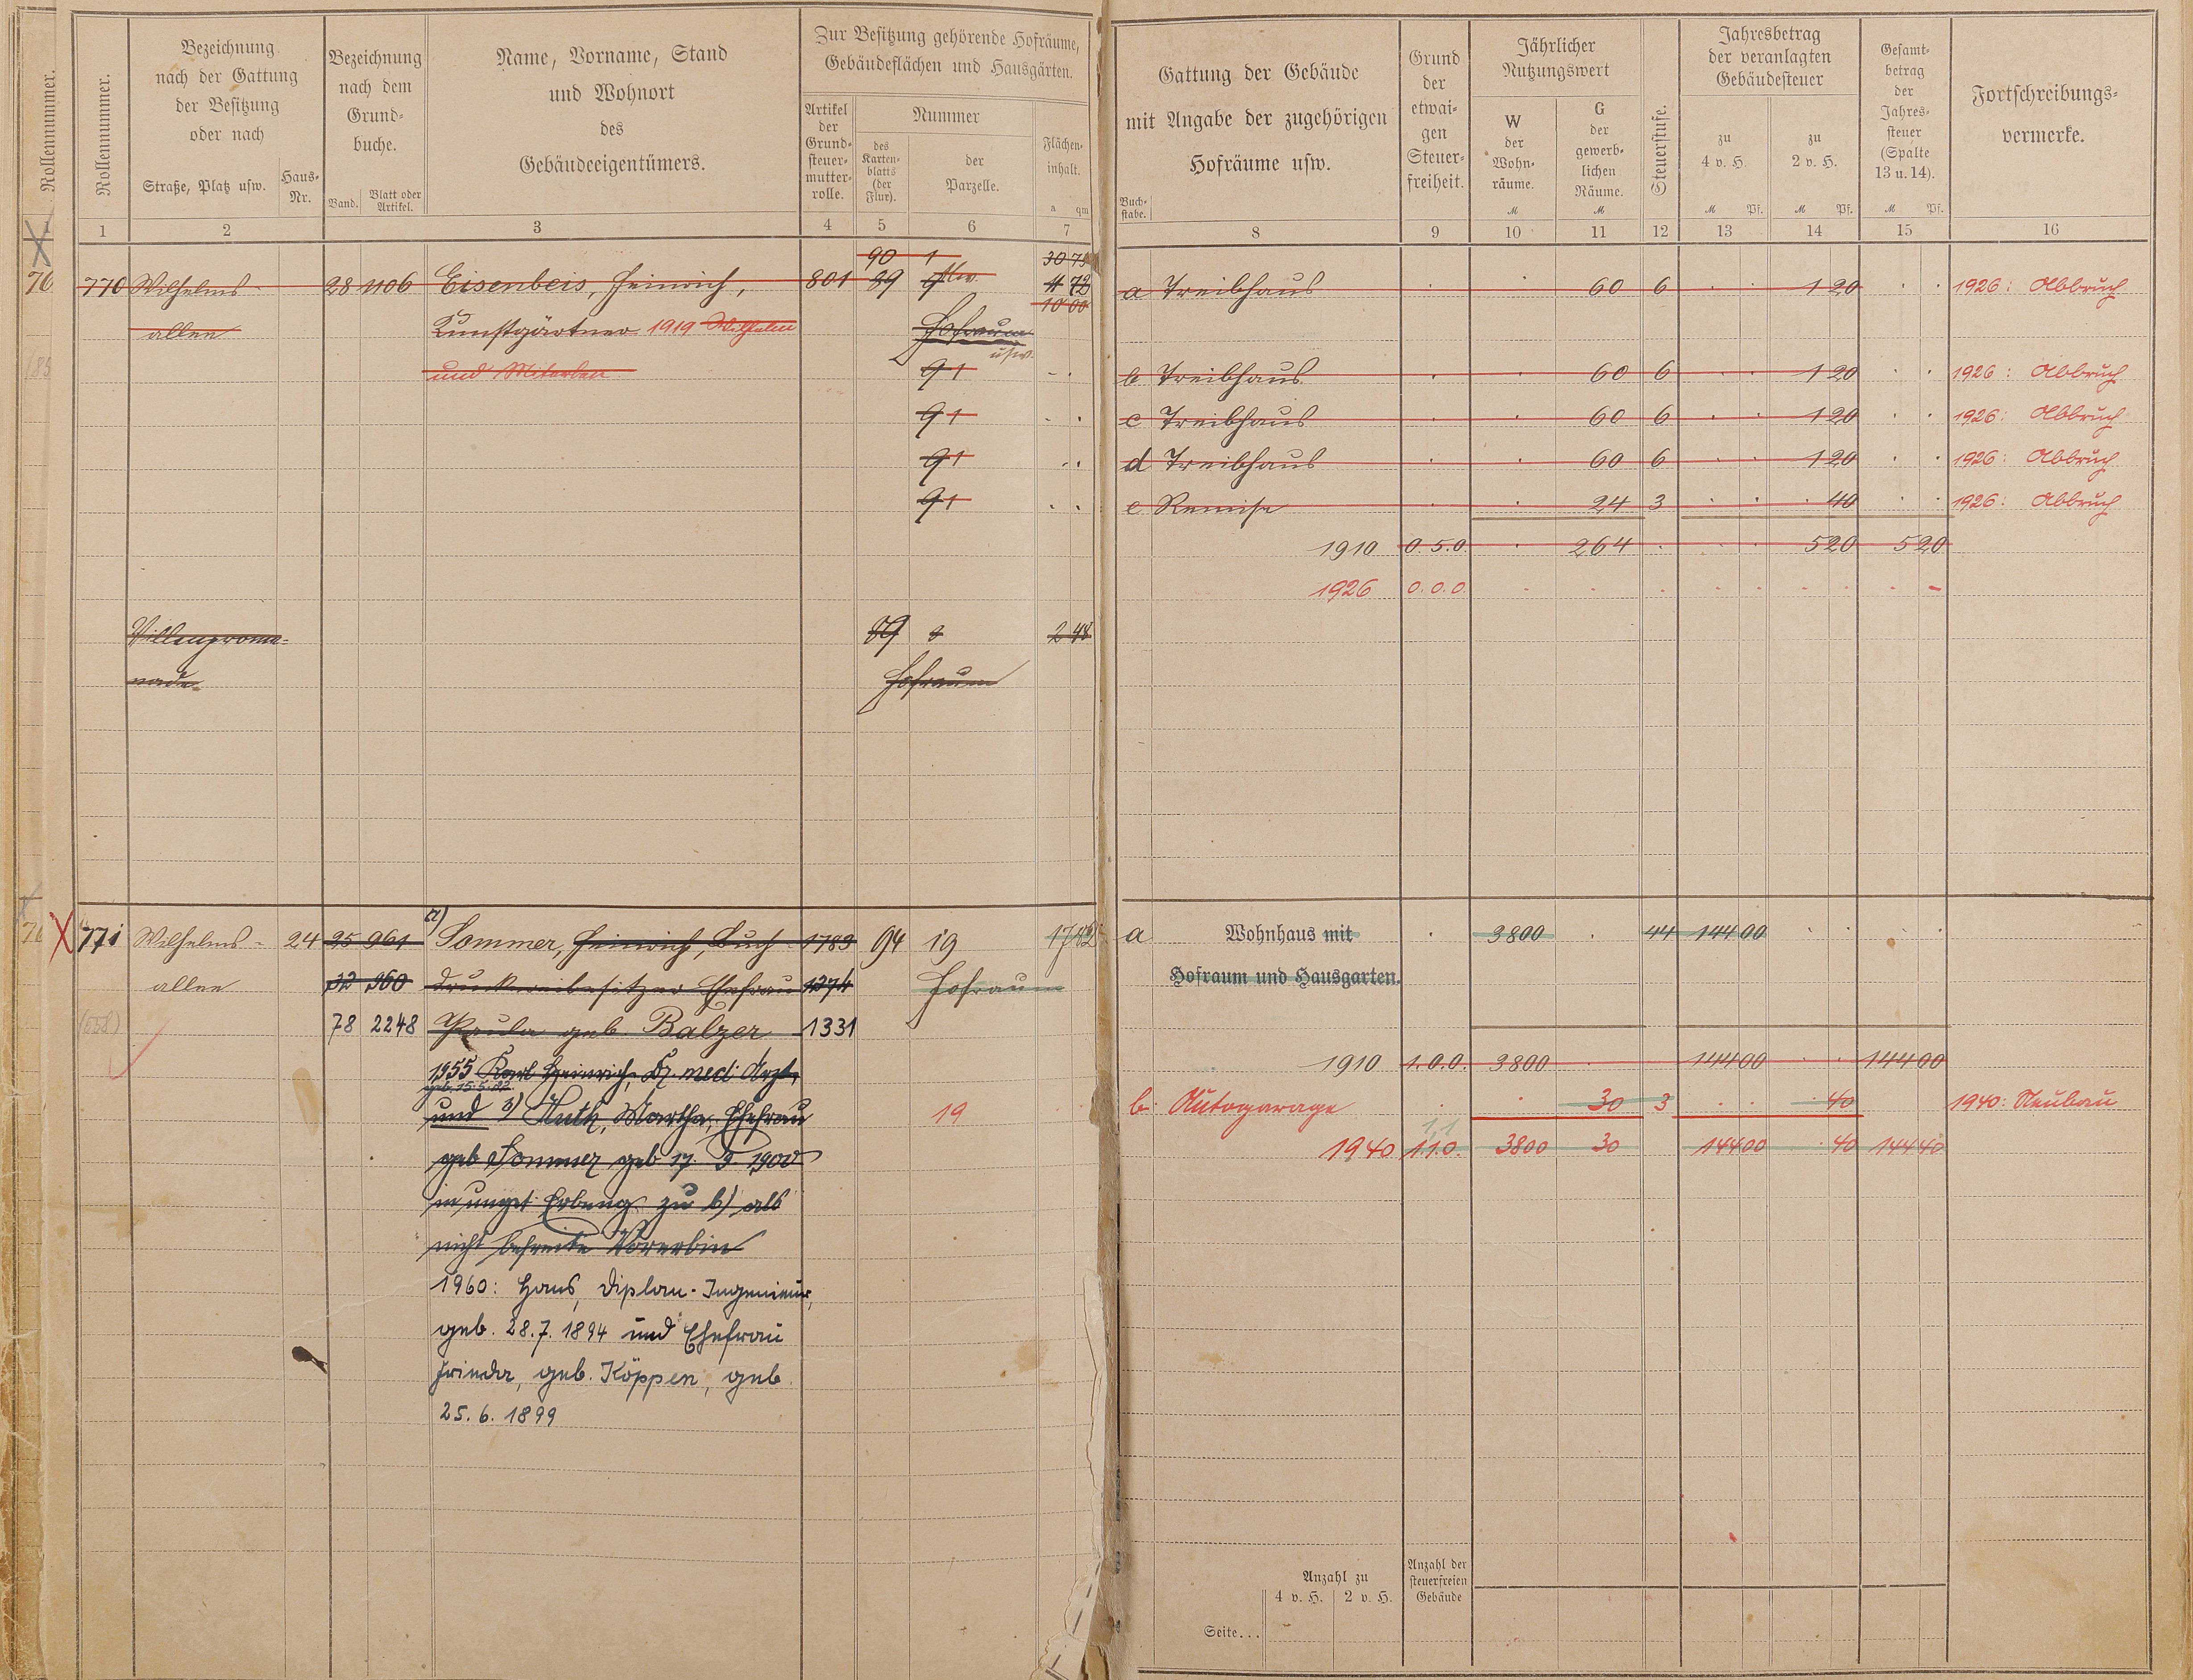 Rollennummer.
Rollennummer.
Bezeichnung
nach der Gattung
der Besitzung
oder nach
Straße, Platz usw.
Haus-
Nr.
Bezeichnung
nach dem
Grund-
buche.
Band.
Blatt oder
Artikel.
Name, Vorname, Stand
und Wohnort
des
Gebäudeeigentümers.
Zur Besitzung gehörende Hofräume,
Gebäudeflächen und Hausgärten.
Artikel
der
Grund-
steuer-
mutter-
rolle.
Nummer
des
Karten-
blatts
(der
Flur).
der
Parzelle.
Flächen-
inhalt.
a qm
1 2 3 4 5 6 7
90 1 30 75
770 Wilhelms- 28 1106 Eisenbeis, Heinrich, 801 89
10 00
allee Kunstgärtner 1919 Wilhelm Hofraum
usw.
und Miterben 91
91
91
91
Villenprome- 89 8 2 48
nade Hofraum
771 Wilhelms- 24 25 961 Sommer, Heinrich, Buch- 1783 94 19 17 82
allee 32 960 druckereibesitzer Ehefrau 1274 Hofraum
(658) 78 2248 Paula geb. Balzer 1331
1955 Karl Heinrich, Dr. med. Arzt,
geb. 15.5.22
und 3) Huth, Martha, Ehefrau 19
geb Sommer geb 17. 5. 1900
in unget. Erbeng. zu b) als
nicht befreite Vorerbin
1960: Hans, Diplom-Ingenieur,
geb. 28.7.1894 und Ehefrau
Frieda, geb. Köppen, geb.
25.6.1899
Gattung der Gebäude
mit Angabe der zugehörigen
Hofräume usw.
Buch-
stabe.
Grund
der
etwai-
gen
Steuer-
freiheit.
Jährlicher
Nutzungswert
W
der
Wohn-
räume.
M
G
der
gewerb-
lichen
Räume.
M
Steuerstufe.
Jahresbetrag
der veranlagten
Gebäudesteuer
zu
4 v. H.
M Pf.
zu
2 v. H.
M Pf.
Gesamt-
betrag
der
Jahres-
steuer
(Spalte
13 u. 14).
M Pf.
Fortschreibungs-
vermerke.
8 9 10 11 12 13 14 15 16
a Treibhaus 60 6 1 20 1926: Abbruch
b Treibhaus 60 6 1 20 1926: Abbruch
c Treibhaus 60 6 1 20 1926: Abbruch
d Treibhaus 60 6 1 20 1926: Abbruch
e Remise 24 3 40 1926: Abbruch
1910 0.5.0. 264 5 20 5 20
1926 0.0.0.
a Wohnhaus mit 3800 44 144 00
Hofraum und Hausgarten.
1910 1.0.0. 3800 144 00 144 00
b. Autogarage 30 3 40 1940: Neubau
1.1
1940 1.1.0. 3800 30 144 00 40 144 40
Anzahl zu
4 v. H. 2 v. H.
Anzahl der
steuerfreien
Gebäude
Seite...